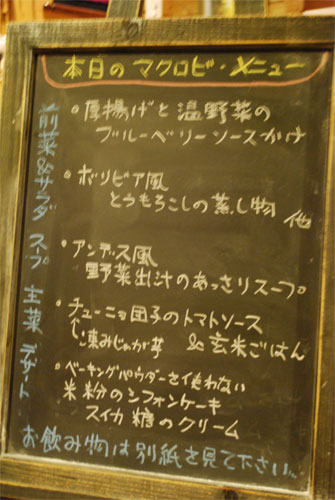 本日のマクロビ・メニュー
前菜&サラダ
。厚揚げと温野菜の
ブルーベリーソースかけ
。ボリビア風
とうもろこしの蒸し物 他
スープ
。アンデス風
野菜出汁のあっさりスープ
主菜
。チューニョ団子のトマトソース
↑凍みじゃが芋 &玄米ごはん
デザート
。ベーキングパウダーを使わない
米粉のシフォンケーキ
スイカ糖のクリーム
お飲み物は別紙を見て下さい。